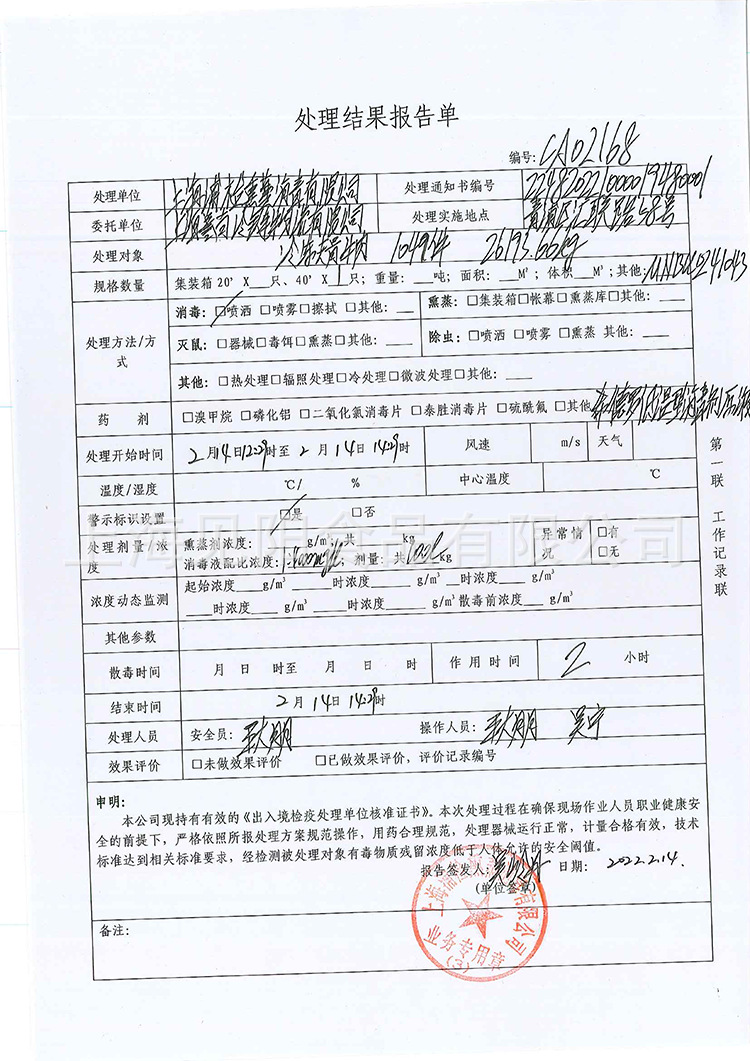 处理结果报告单
编号: CA02168
处理单位 上海浦 熏蒸消毒有限公司 处理通知书编号
委托单位 上海 有限公司 处理实施地点 青浦区汇联路58号
处理对象 冷冻 牛肉 1049件 26193.66kg
规格数量 集装箱20' X 只、40' X 1只; 重量: 吨; 面积: M²; 体积 M³; 其他:
处理方法/方式 消毒: □喷洒 □喷雾 □擦拭 □其他: 熏蒸: □集装箱□帐幕□熏蒸库□其他:
灭鼠: □器械□毒饵□熏蒸□其他: 除虫: □喷洒 □喷雾 □熏蒸 其他:
其他: □热处理□辐照处理□冷处理□微波处理□其他:
药 剂 □溴甲烷 □磷化铝 □二氧化氯消毒片 □泰胜消毒片 □硫酰氟 □其他
处理开始时间 2月14日12:29时至 2月14日 14:29时 风速 m/s 天气
温度/湿度 ℃/ % 中心温度 ℃
警示标识设置 □是 □否
处理剂量/浓度 熏蒸剂浓度: g/m³; 共 kg 异常情况 □有
消毒液配比浓度: ; 剂量: 共 kg □无
浓度动态监测 起始浓度 g/m³ 时浓度 g/m³ 时浓度 g/m³
时浓度 g/m³ 时浓度 g/m³散毒前浓度 g/m³
其他参数
散毒时间 月 日 时至 月 日 时 作用时间 2 小时
结束时间 2月14日 14:29时
处理人员 安全员: 操作人员: 吴宁
效果评价 □未做效果评价 □已做效果评价,评价记录编号
申明:
本公司现持有有效的《出入境检疫处理单位核准证书》。本次处理过程在确保现场作业人员职业健康安
全的前提下,严格依照所报处理方案规范操作,用药合理规范,处理器械运行正常,计量合格有效,技术
标准达到相关标准要求,经检测被处理对象有毒物质残留浓度低于人体允许的安全阈值。
报告签发人: 日期: 2022.2.14.
(单位签章)
业务专用章
(3)
备注:
第一联 工作记录联
上海贝阳食品有限公司